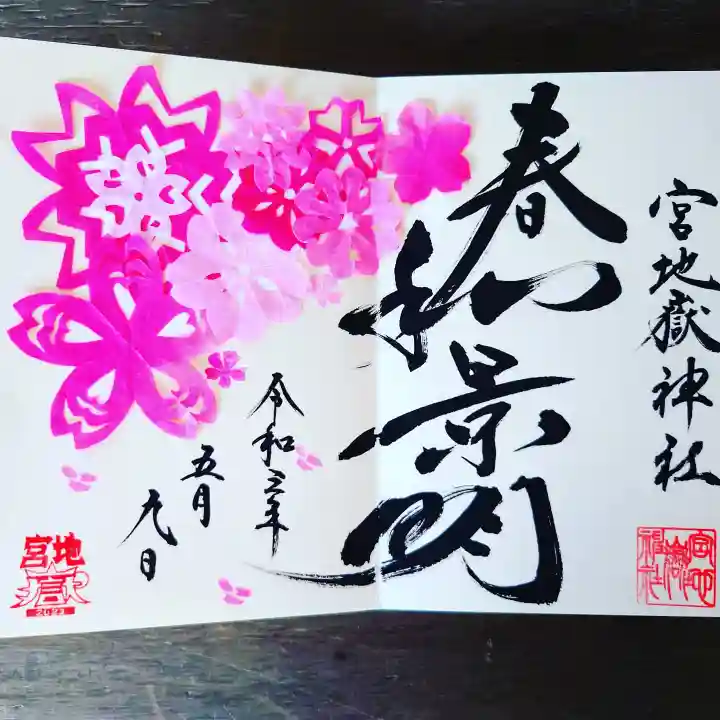 宮地嶽神社
春和景明
令和三年
五月
九日
宮地嶽
神社
宮地
嶽
2023